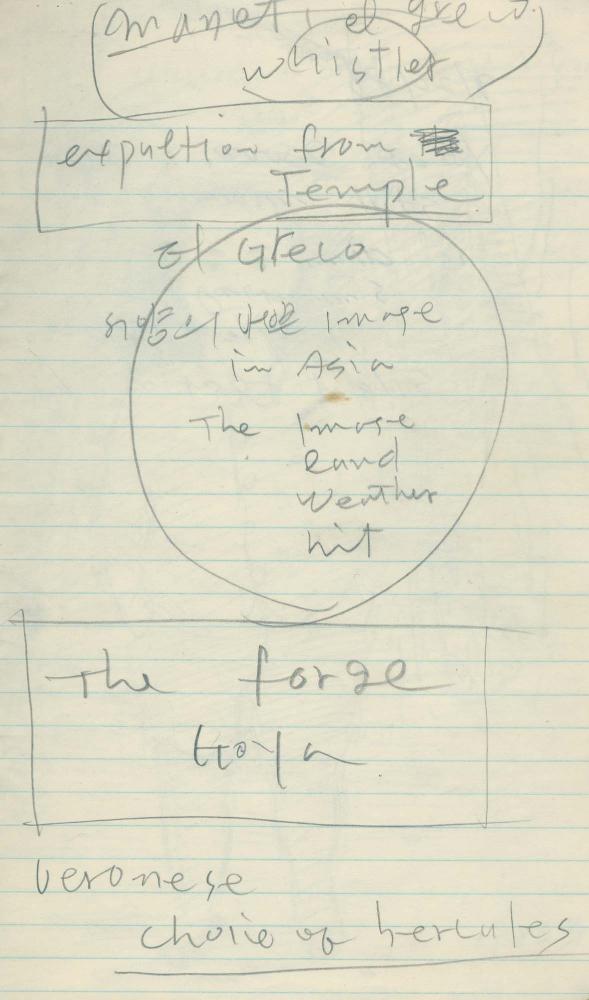 manet, el greco
whistler
expultion from
Temple
El Greco
서양의 image
in Asia
The Image
Land
Weather
hit
The forge
Goya
Veronese
Choice of hercules